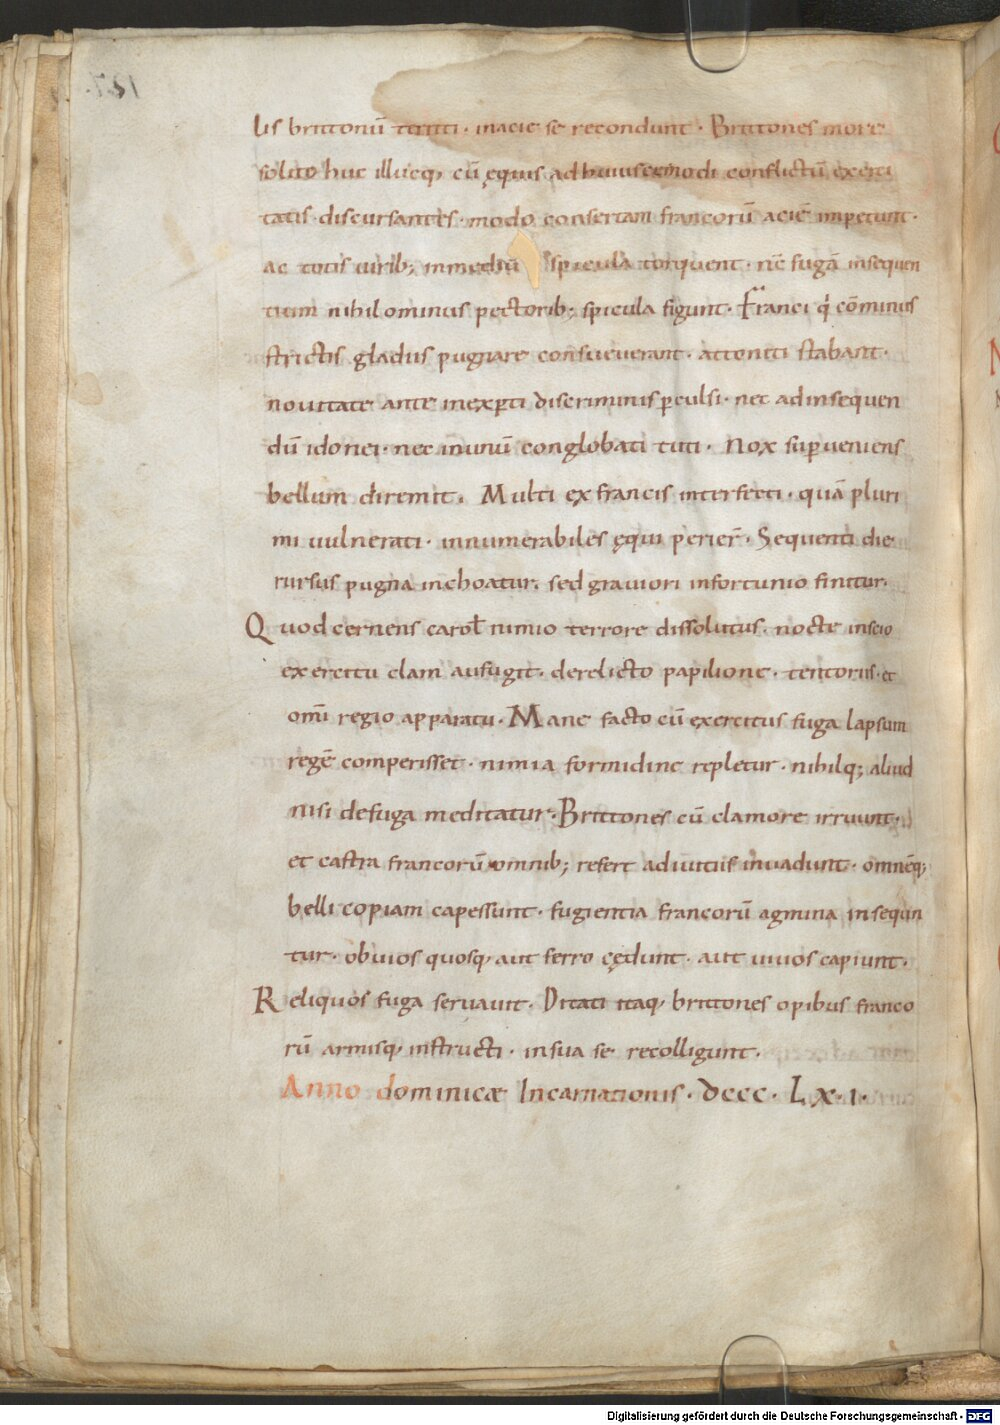 lis brittonū territi · inacie se recondunt · Brittones more
solito huc illucq; cū ęquis adhuiuscemodi conflictū exerci
tatis discursantes · modo consertam francorū aciē impetunt ·
ac totis uirib; inmediū spicula torquent · nc̄ fugā insequen
tium nihilominus pectorib; spicula figunt · Franci q̇ cōminus
strictis gladiis pugnare consueuerant · attoniti stabant ·
nouitate ante inexp̲ti discriminis p̲culsi · nec adinsequen
dū idonei · nec inunū conglobati tuti · Nox sup̲ueniens
bellum diremit · Multi ex francis interfecti · quā pluri
mi uulnerati · innumerabiles ęqui perier̄ · Sequenti die
rursus pugna inchoatur · sed grauiori infortunio finitur ·
Quod cernens carol̄ nimio terrore dissolutus · nocte inscio
exercitu clam aufugit · derelicto papilione · tentoriis · et
omī regio apparatu · Mane facto cū exercitus fuga lapsum
regē comperisset · nimia formidine repletur · nihilq; aliud
nisi defuga meditatur · Brittones cū clamore irruunt ·
et castra francorū omnib; refert adiuitiis inuadunt · omnēq;
belli copiam capessunt · fugientia francorū agmina insequn
tur · obuios quosq; aut ferro cędunt · aut uiuos capiunt ·
Reliquos fuga seruauit · Ditati itaq; brittones opibus franco
rū armisq; instructi · insua se recolligunt ·
Anno dominicæ Incarnationis · DCCC · LX · I ·
127 ·
Digitalisierung gefördert durch die Deutsche Forschungsgemeinschaft - DFG